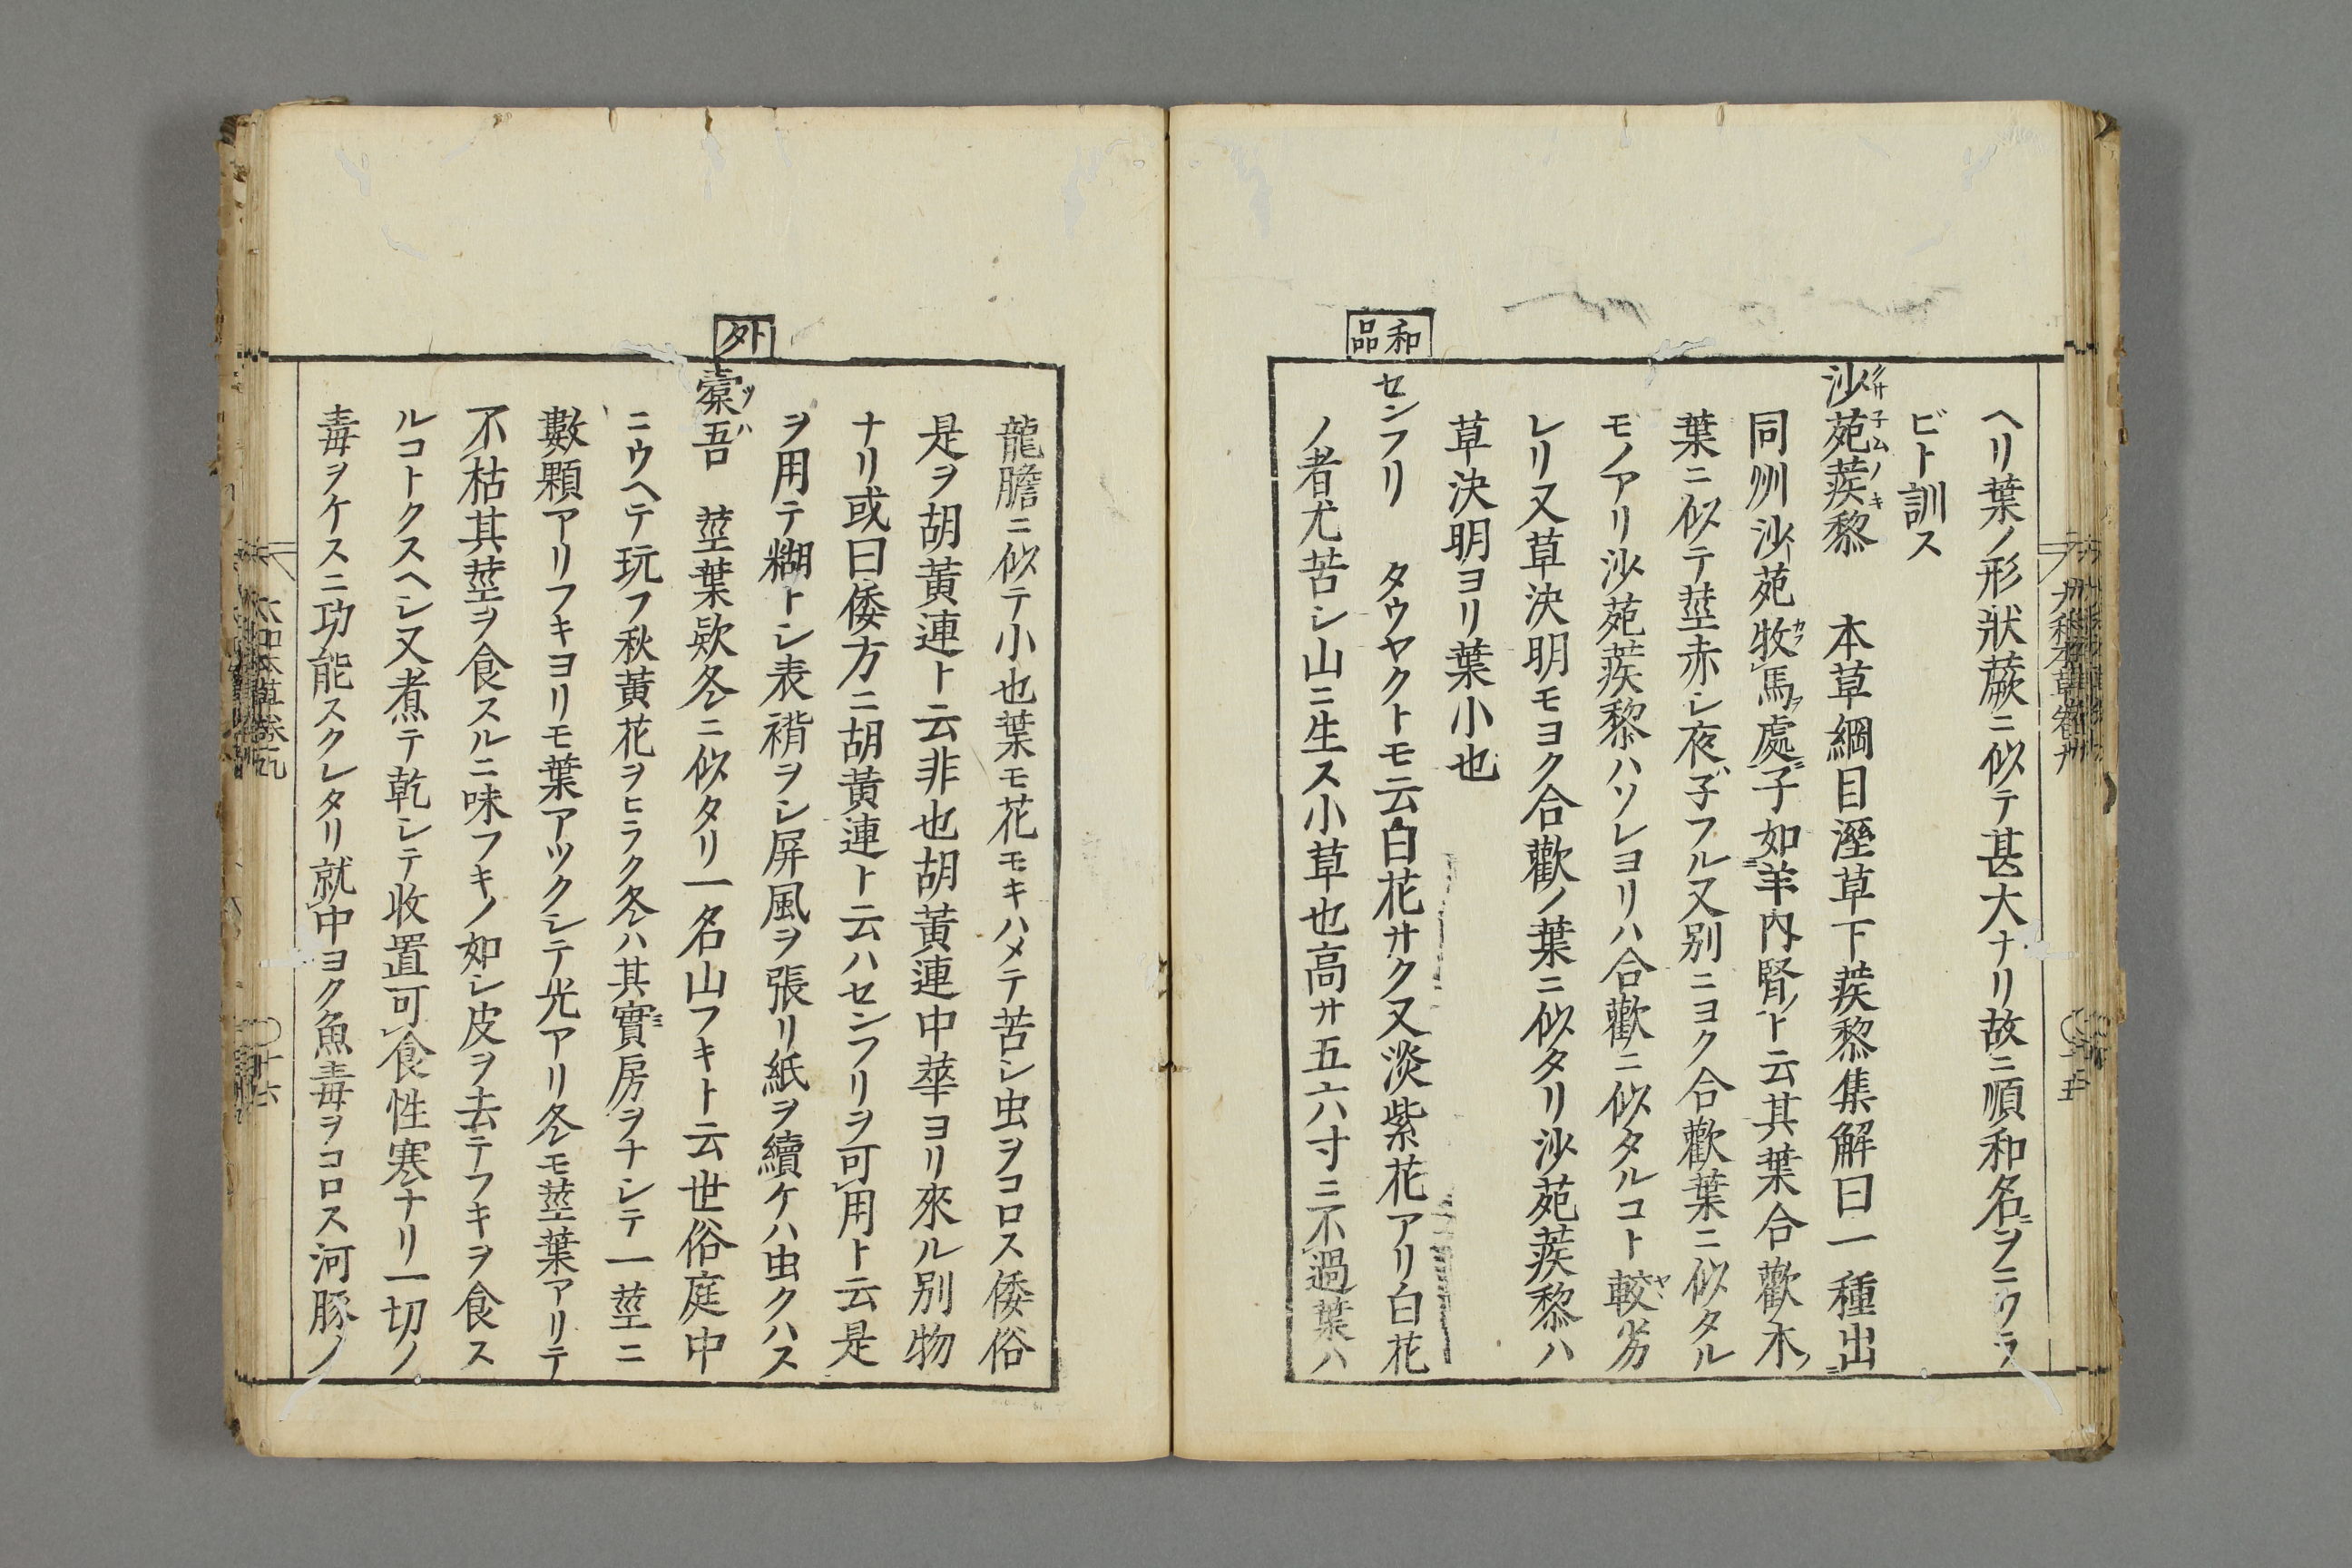 ヘリ葉ノ形狀蕨ニ似テ甚大ナリ故ニ順和名ヲニワラ
ビト訓ス
沙苑蒺藜 本草綱目溼草下蒺藜集解曰一種出
同州沙苑牧馬處子如羊内腎ト云其葉合歡木ノ
葉ニ似テ莖赤シ夜子フル又別ニヨク合歡葉ニ似タル
モノアリ沙苑蒺藜ハソレヨリハ合歡ニ似タルコト較劣
レリ又草決明モヨク合歡ノ葉ニ似タリ沙苑蒺藜ハ
草決明ヨリ葉小也
和品
センフリ タウヤクトモ云白花サク又淡紫花アリ白花
ノ者尤苦シ山ニ生ス小草也高サ五六寸ニ不過葉ハ
龍膽ニ似テ小也葉モ花モキハメテ苦シ虫ヲコロス倭俗
是ヲ胡黃連ト云非也胡黃連中華ヨリ來ル別物
ナリ或曰倭方ニ胡黃連ト云ハセンフリヲ可用ト云是
ヲ用テ糊トシ表褙ヲシ屏風ヲ張リ紙ヲ續ケハ虫クハス
外
橐吾 莖葉欵冬ニ似タリ一名山フキト云世俗庭中
ニウヘテ玩フ秋黃花ヲヒラク冬ハ其實房ヲナシテ一莖ニ
數顆アリフキヨリモ葉アツクシテ光アリ冬モ莖葉アリテ
不枯其莖ヲ食スルニ味フキノ如シ皮ヲ去テフキヲ食ス
ルコトクスヘシ又煮テ乾シテ收置可食性寒ナリ一切ノ
毒ヲケスニ功能スクレタリ就中ヨク魚毒ヲコロス河豚ノ
大和本草卷之九
十六